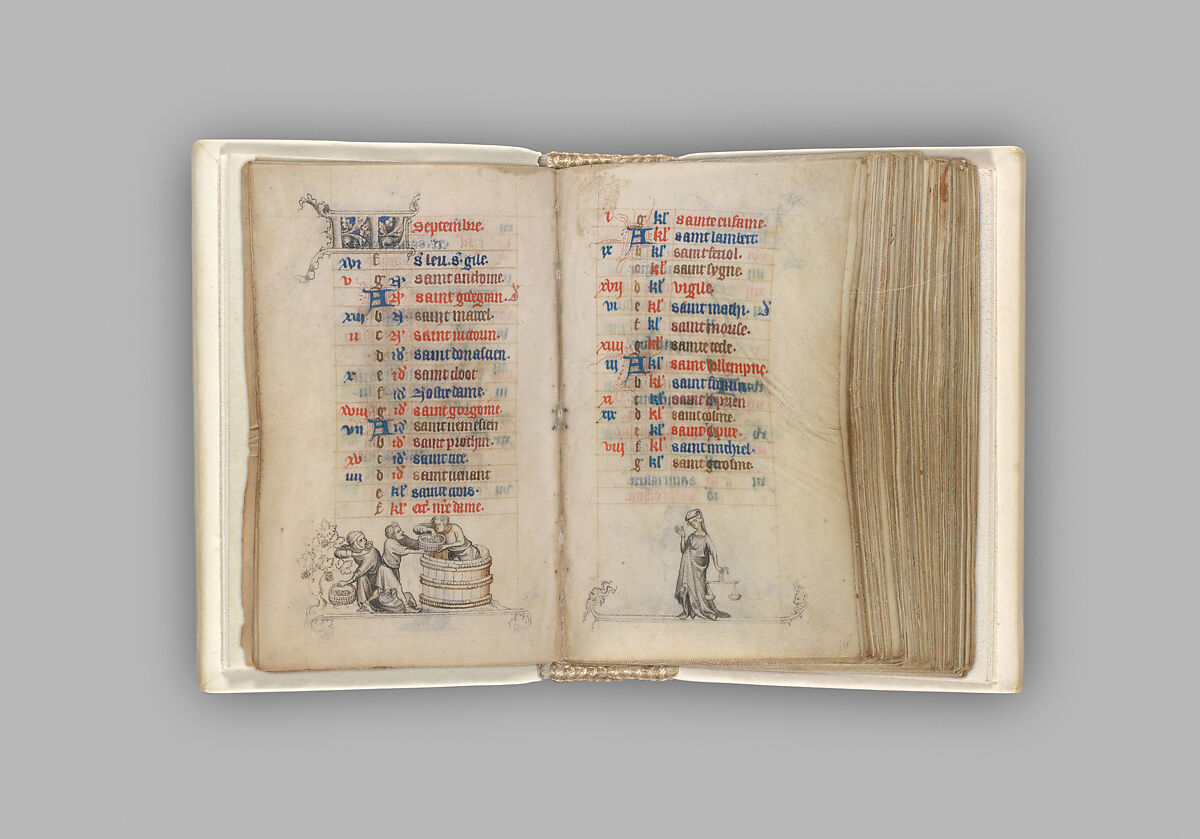 KL Septembre.
xvi f s' leu. s' gile.
v g saint anthoine.
A saint
xiii b saint marcel.
ii c saint
d saint donascien.
x e id' saint cloot
f id' nostre dame.
xviii g id' saint gorgoine.
vii A id' saint nemesien
b id' saint prothin.
xv c id' saint
iiii d id' saint venant
e kl' sainte crois.
f kl' oct' nr'e dame.
i g kl' sainte eufame.
A kl' saint lambert.
ix b kl' saint feriol.
c kl' saint sygne.
xvii d kl' vigile.
vi e kl' saint mathi.
f kl' saint morise.
xiiii g kl' sainte tecle.
iii A kl' saint sollempne.
b kl' saint firmin.
xi c kl' saint cyprien
xix d kl' saint cosme.
e kl' saint
viii f kl' saint michiel.
g kl' saint gerosme.